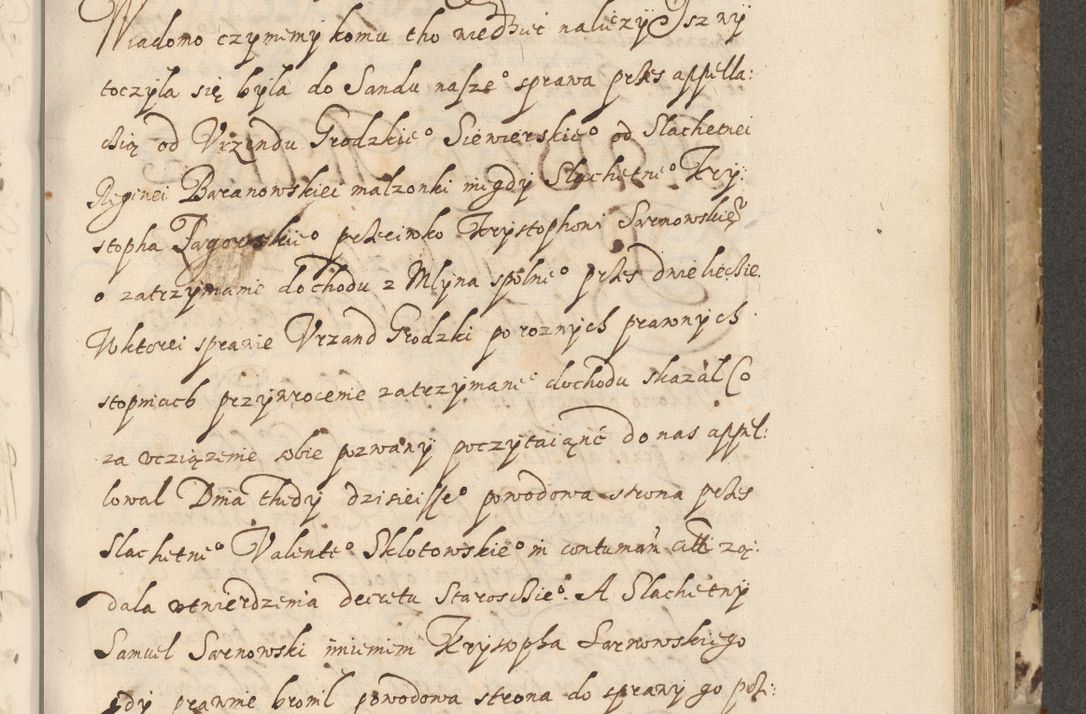 Wiadomo czynimy komu tho wiedziec nalezy Isz my
toczyla się byla do Sandu nasze° sprawa przes appella:
cbią od Vrzendu Grodzkie° Siewierskie° od Slachetnei
Reginei Baranowskiei malzonki niegdy Slachetne° Kry:
stopha Zagorskie° przeciwko Krystophowi Sarnowskie°
o zatrzymanie dochodu z Mlyna spolne° przes dwie lecie.
W ktorei sprawie Vrzand Grodzki po roznych prawnych
stopniach przywrocenie zatrzymane° dochodu skazal Co
za vcziązenie sobie pozwany poczytaiąnc do nas appel:
lowal Dnia thedy dzisieisse° powodowa strona przes
Slachetne° Valente° Sklotowskie° in contumam citti ządala
dala vtwierdzenia decretu Staroscie°. A Slachetny
Samuel Sarnowski imieniem Krystopha Sarnowskiego
gdy prawnie bronil powodowa strona do sprawy go poz: